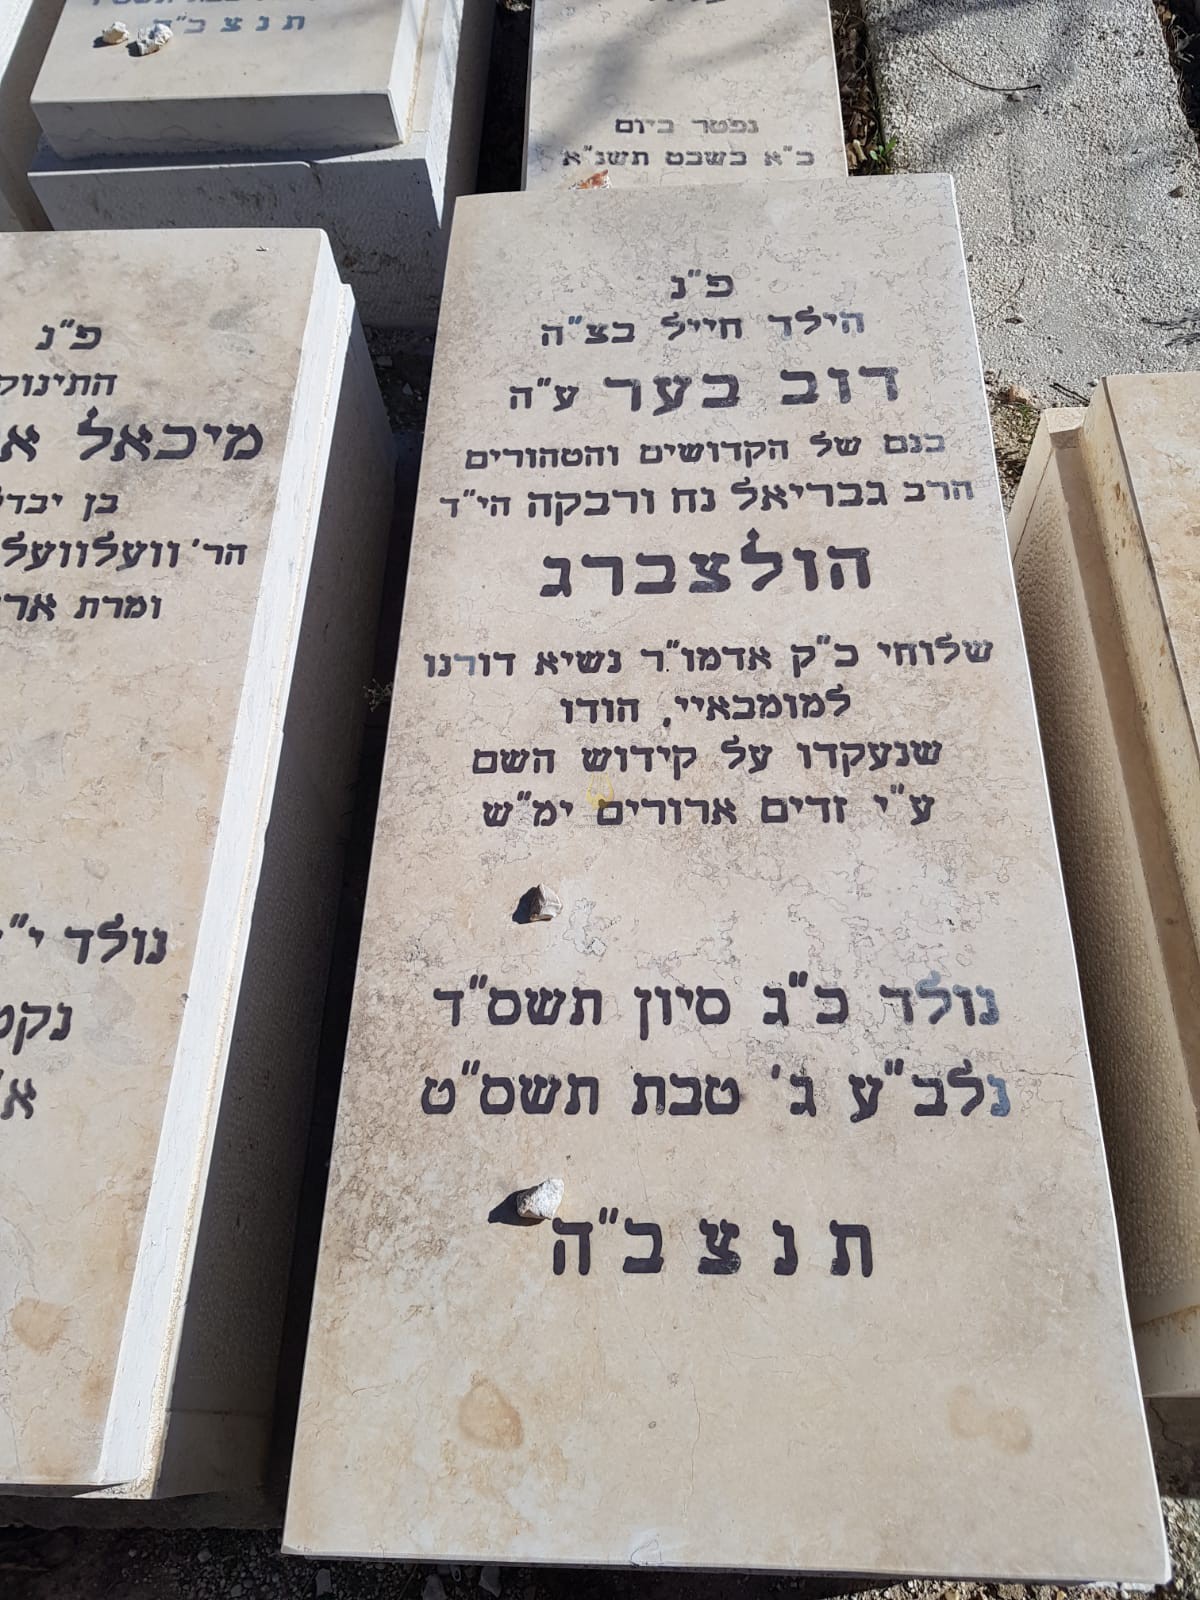 ת נ צ ב"ה
נפטר ביום
כ"א בשבט תשנ"א
פ"נ
הילד חייל בצ"ה
דוב בער ע"ה
בנם של הקדושים והטהורים
הרב גבריאל נח ורבקה הי"ד
הולצברג
שלוחי כ"ק אדמו"ר נשיא דורנו
למומבאיי, הודו
שנעקדו על קידוש השם
ע"י זדים ארורים ימ"ש
נולד כ"ג סיון תשס"ד
נלב"ע ג' טבת תשס"ט
ת נ צ ב"ה
פ"נ
התינוק
מיכאל
בן יבדל
הר' וועלוועל
ומרת
נולד